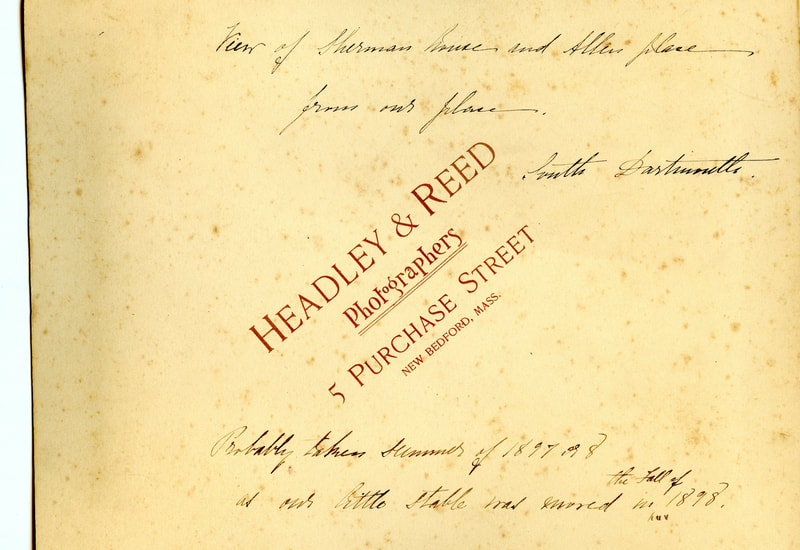 View of Sherman house and Allen place
from our place.
South Dartmouth.
HEADLEY & REED
Photographers
5 PURCHASE STREET
NEW BEDFORD, MASS.
Probably taken summer of 1897 98
the Fall of
as our little stable was moved in 1898.